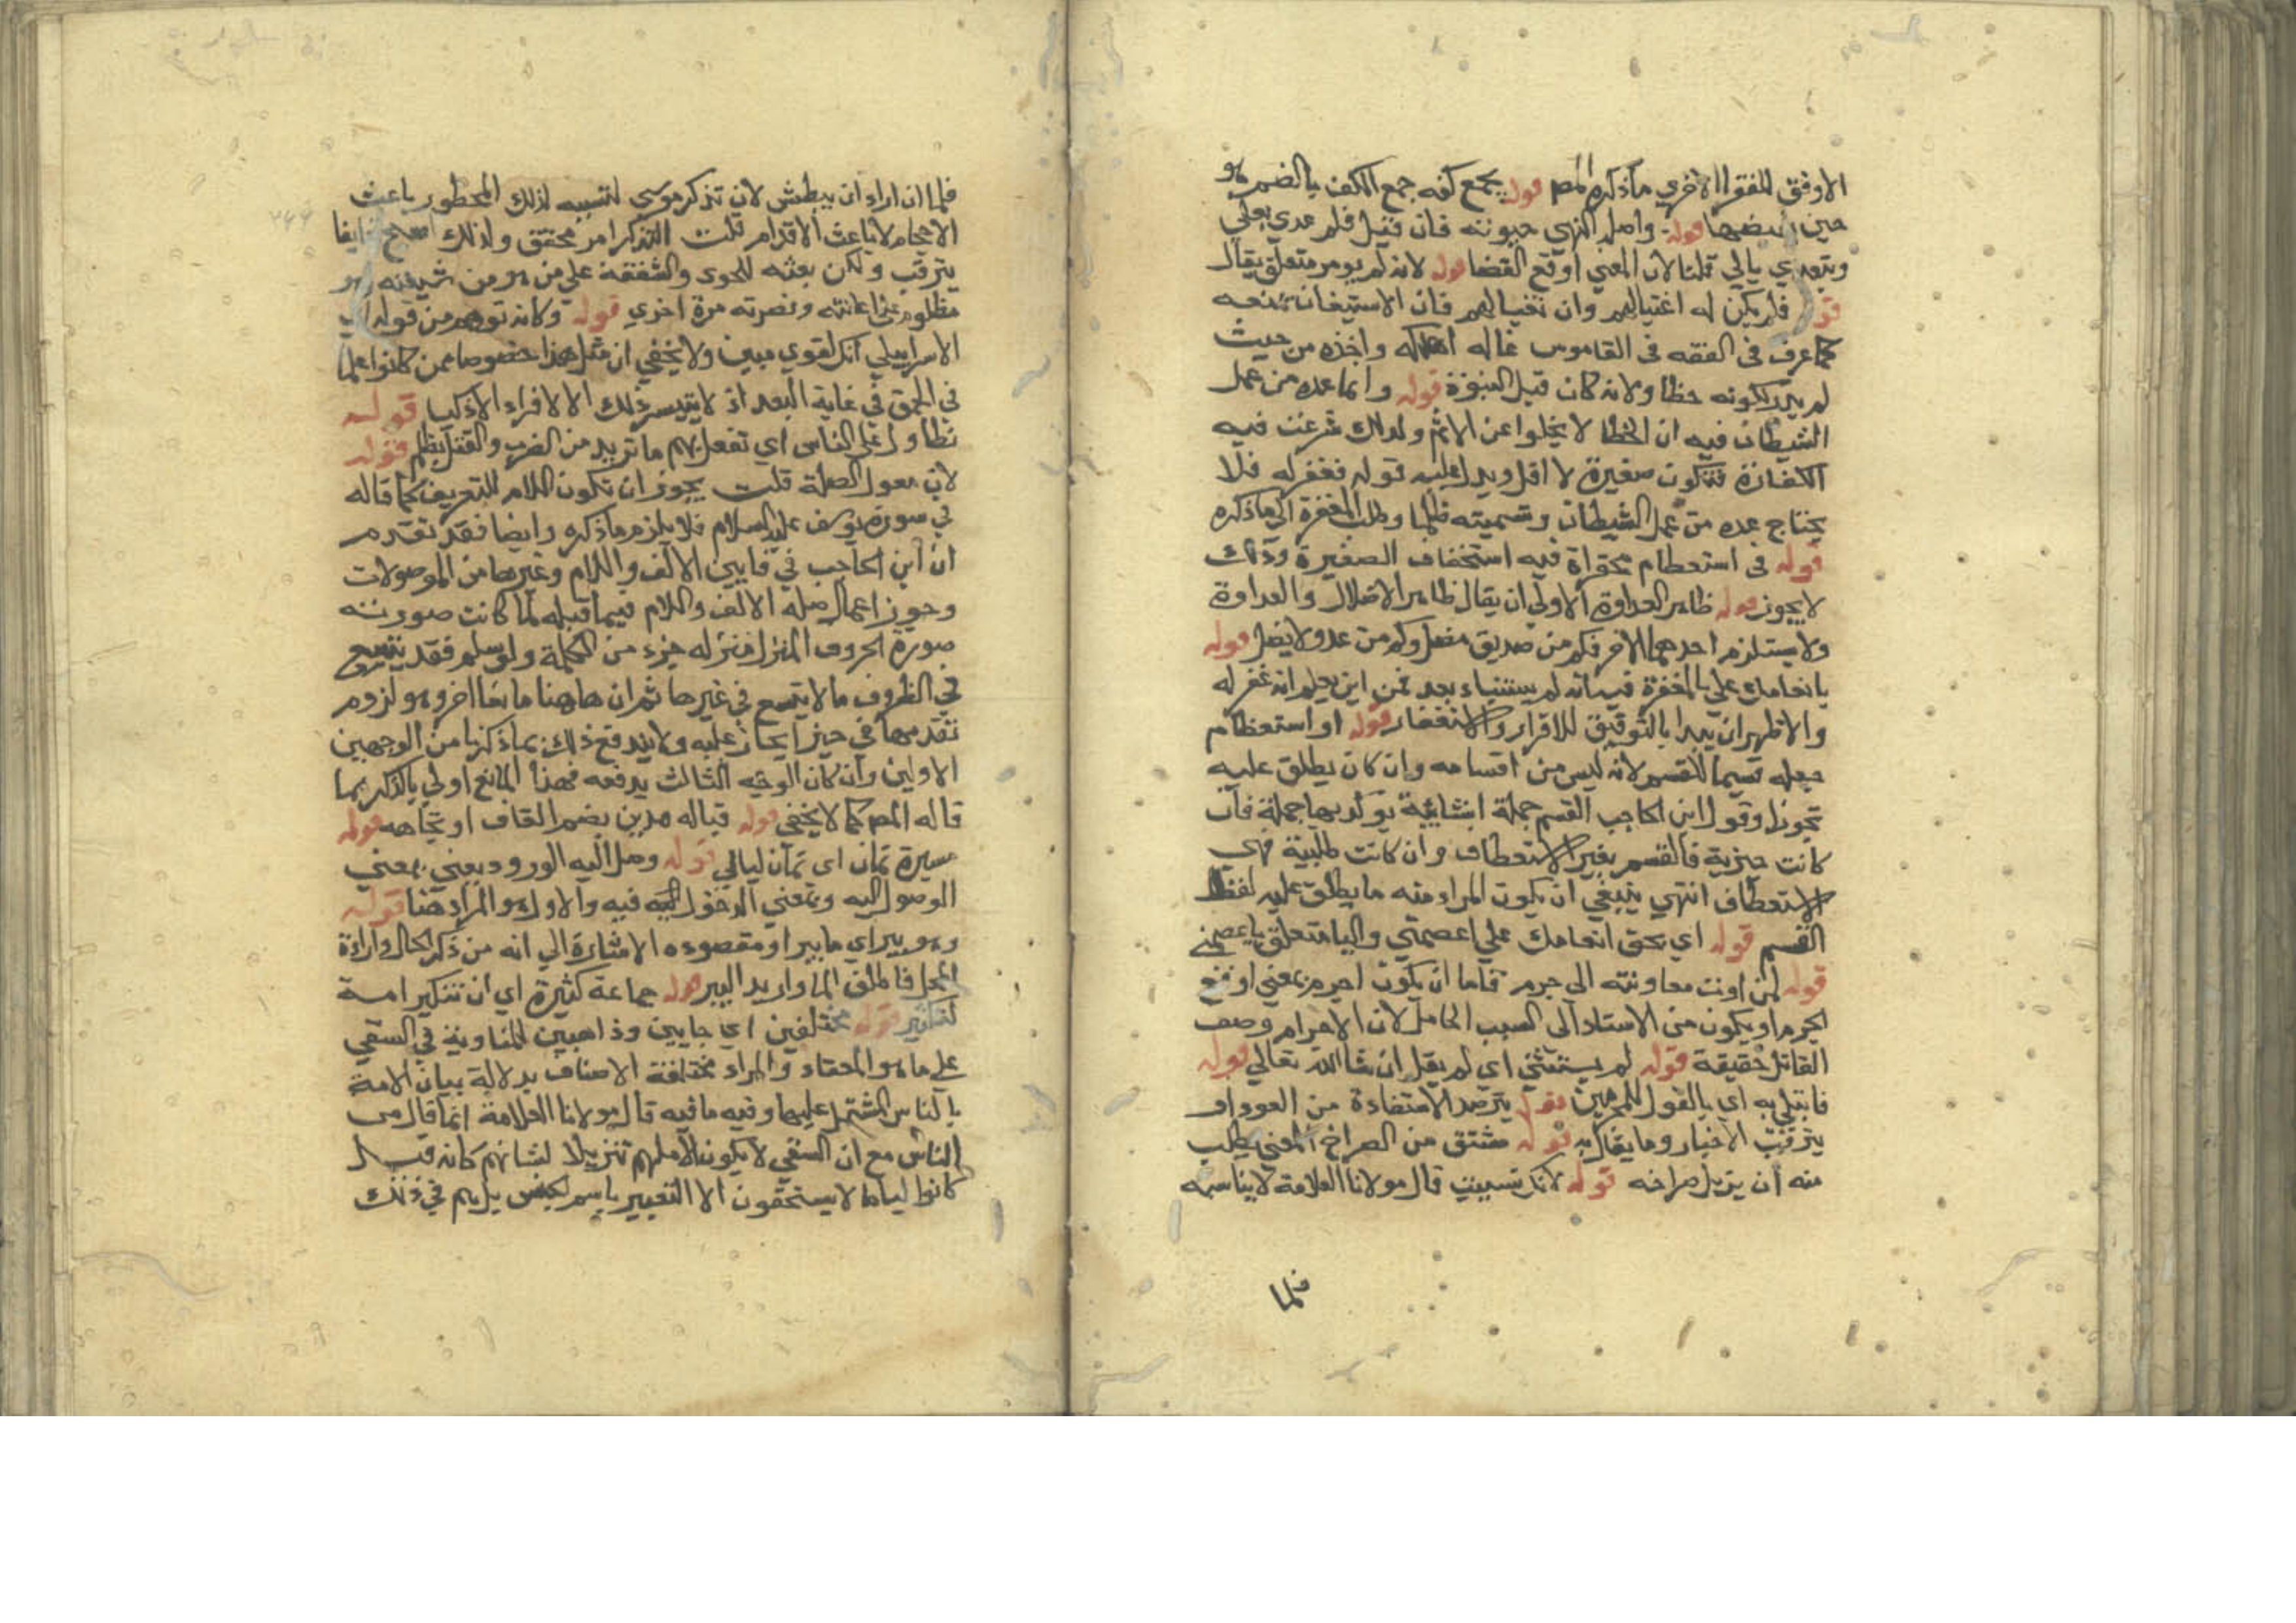 الاوفق للفقرا الاخري ما ذكره المصر قوله يجمع كفه جمع الكف بالضم هو
حين قوله واصله انهي حيوته فان قيل فلم عدي بعلي
ويتعدي بالي قلنا لان المعني اوقع القضا قوله لانه لم يومر متعلق بقال
فلم يكن له اغتيالهم وان نغيالهم فان الاستيمان يمنعه
كما عرف في الفقه في القاموس غاله اهلكه واخذه من حيث
لم يدر لكونه خطا ولانه كان قبل النبوة قوله وانما عده من عمل
الشيطان فيه ان الخطا لا يخلوا عن الاثم ولذلك شرعت فيه
الكفارة فتكون صغيرة لا اقل ويدل عليه قوله فغفر له فلا
يحتاج عده من عمل الشيطان وتسميته ظلما وطلب المغفرة الي ما ذكره
قوله في استعظام محقراة فيه استخفاف الصغيرة وذلك
لا يجوز قوله ظاهر العداوة الاولي ان يقال ظاهر الاضلال والعداوة
ولا يستلزم احدهما الاخر فكم من صديق مضل وكم من عدو لا يضل قوله
بانعامك علي بالمغفرة فيه انه لم يستنباء بعد فمن اين يعلم انه غفر له
والاظهر ان يبدا بالتوفيق للاقرار والاستغفار قوله او استعطام
جعله قسيما للقسم لانه ليس من اقسامه وان كان يطلق عليه
تجوزا وقول ابن الحاجب القسم جملة انشائية توكد بها جملة فان
كانت خبرية فالقسم بغير الاستعطاف وان كانت طلبية فهي
الاستعطاف انتهي ينبغي ان يكون المراد منه ما يطلق عليه لفظ
القسم قوله اي بحق انعامك علي اعصمني واليا متعلق باعصمني
قوله لمن اونت معاونته الي جرم فاما ان يكون اجرم بمعني اوقع
الجرم او يكون من الاسناد الي السبب الحامل لان الاجرام وصف
القاتل حقيقة قوله لم يستثني اي لم يقل ان شا الله تعالي قوله
فابتلي به اي بالقول للمجرمين قوله يترصد الاستفادة من العود او
يترقب الاخبار وما يقال به قوله مشتق من الصراخ المعني يطلب
منه ان يزيل صراخه قوله لانك تسببت قال مولانا العلامة لا يناسبه
فلما
فلما ان اراد ان يبطش لان تذكر موسي لتسببه لذلك المحظور باعث
الاحجام لا باعث الاقدام قلت التذكر امر محقق ولذلك اصبح خايفا
يترقب ولكن بعثه للحوق والشفقة علي من هو من شيعته
مظلوم علي اعانته ونصرته مرة اخري قوله وكانه توهم من قوله
الاسرايلي انك لغوي مبين ولا يخفي ان مثل هذا خصوصا ممن كانوا علما
في الحمق في غاية البعد اذ لا يتيسر ذلك الا لافراد الاذكيا قوله
تطاولا علي الناس اي تفعل بهم ما تريد من الضرب والقتل بظلم قوله
لان معول الصلة قلت يجوز ان تكون اللام للتعريف كما قاله
في سورة يوسف عليه السلام فلا يلزم ما ذكره وايضا فقد تقدم
ان ابن الحاجب في فابين الالف واللام وغيرها من الموصولات
وجوز اعمال صلة الالف واللام فيما قبله لما كانت صورته
صورة الحروف المنزل منزلة جزء من الكلمة ولو سلم فقد يتسع
في الظروف ما لا يتسع في غيرها ثم ان هاهنا مانعا اخر وهو لزوم
تقدمها في حيز ايجاز عليه ولا يندفع ذلك بما ذكرنا من الوجهين
الاولين وان كان الوجه الثالث يدفعه فهذا المانع اولي بالذكر مما
قاله المصر كما لا يخفي قوله قباله مدين بضم القاف او تجاهه قوله
مسيرة ثمان اي ثمان ليالي قوله وصل اليه الورود يعني بمعني
الوصول اليه وبمعني الدخول فيه والاول هو المراد هنا قوله
وهو بير اي ما بير او مقصوده الاشارة الي انه من ذكر الحال وارادة
المحل فاطلق الما واريد البير قوله جماعة كثيرة اي ان تنكير امة
لتكثير قوله مختلفين اي جايين وذاهبين للمناوبة في السقي
علي ما هو المعتاد والمراد مختلفة الاصناف بدلالة بيان الامة
بالناس المشتمل عليها وفيه ما فيه قال مولانا العلامة انما قال من
الناس مع ان السقي لا يكون الا منهم تنزيلا لشانهم كانه قيل
كانوا لياما لا يستحقون الا التعبير باسم الجنس بل هم في ذلك